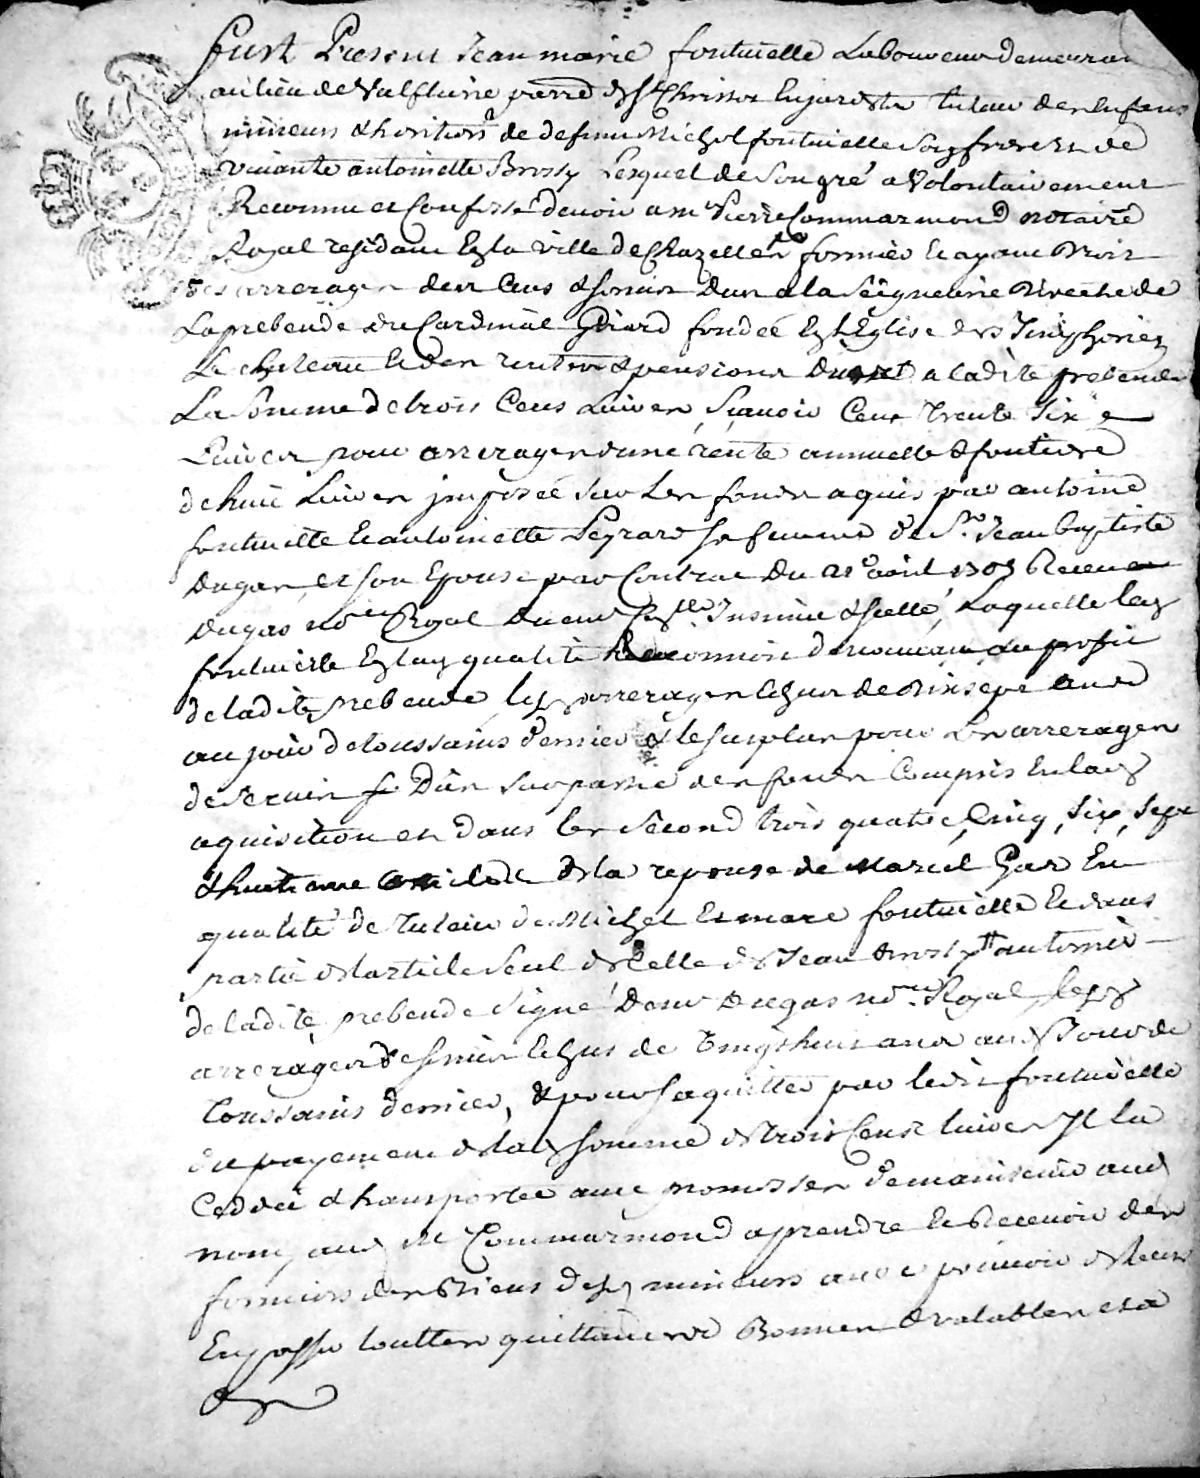 fust Present Jean marie fontvielle Laboureur demeuran
au lieu de Valfluire parre de st Christo en jarest tuteur des enfans
mineurs & heritiers de defunt Michel fontvielle son frere et de
vivante antoinette Brossy Lequel de son gré a Volontairement
Reconnu et Confessé devoir a me Pierre Commarmond notaire
Royal residant en la ville de Chazelle fermier et ayant droit
des arrerages des Cens & servis dun a la Seigneurie directe de
La prebende du Cardinal Girard fondée en Leglise de st Simphorien
Le chateau et des rentes & pensions a ladite prebende
La Somme de trois Cens Livres, Sçavoir Cent trente Six
Livres pour arrerages dune rente annuelle & fontiere
de huit Livres imposée Sur Les fonds aquis par antoine
fontvielle et antoinette Peyrard sa femme de Sr. Jean baptiste
Dugas, et son Epouse par Contrat Du 21e avril 1705 Receu
Dugas nore Royal Insinué & scellé, Laquelle led
fontvielle en lad qualité Reconnoit de nouveau au profit
de ladite prebende les arrerages echus de dix sept ans
au jour de toussains dernier & le surplus pour Les arrerages
de servis Dus sur partie des fonds Compris en lad
aquisition et dans les Second trois quatre, Cinq, Six, Sept
& huitieme article de la reponse de Marcel Gar En
qualité de Tuteur de Michel et marc fontvielle et dans
partie de larticle Seul de Celle de Jean
de ladite prebende Signé Dugas nore Royal lesd
arrerages de servis echus de vingt huit ans aud Jour de
Toussains dernier, & pour saquitter par ledit fontvielle
du payement de lad somme de trois Cens livres Il a
Ceddé & transporté avec promesses de maintenir aud
nom, aud me Commarmond a prendre et Recevoir des
fermiers des Biens desd mineurs avec pouvoir de leurs
En passer touttes quittances Bonnes & valables et a